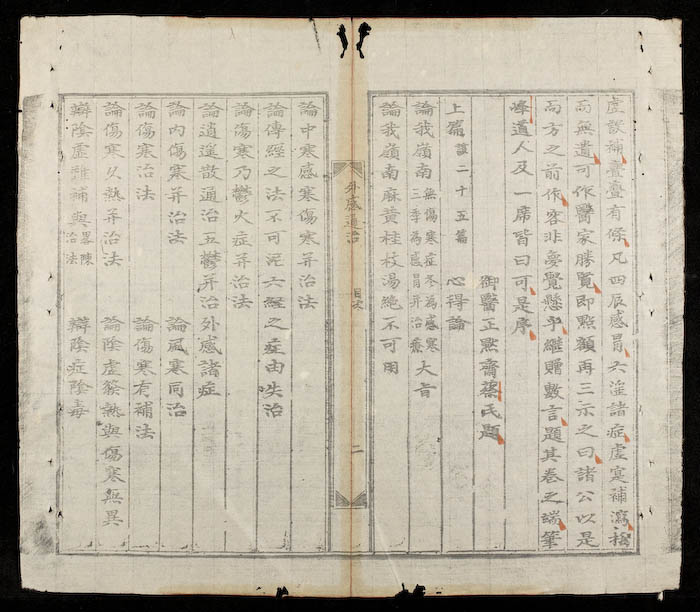 虛設補亹亹有條凡四辰感冒六淫諸症虛寔補瀉
而無遺可作醫家勝覽即點額再三示之曰諸公以是
而方之前作客非夢覺懸乎繼贈數言題其卷之端筆
峰道人及一席皆曰可是序
御醫正點齋蔡氏題
上篇論二十五篇 心得論
論我嶺南無傷寒症冬為感寒三季為感冒并治療大旨
論我嶺南麻黃桂枝湯絕不可用
外感通治 目次 二
論中寒感寒傷寒并治法
論傳經之法不可泥六經之症由失治
論傷寒乃鬱火症并治法
論逍遙散通治五鬱并治外感諸症
論內傷寒并治法 論風寒同治
論傷寒治法 論傷寒有補法
論傷寒久熱并治法 論陰虛發熱與傷寒無異
辯陰虛難補與畧陳治法 辯陰症陰毒